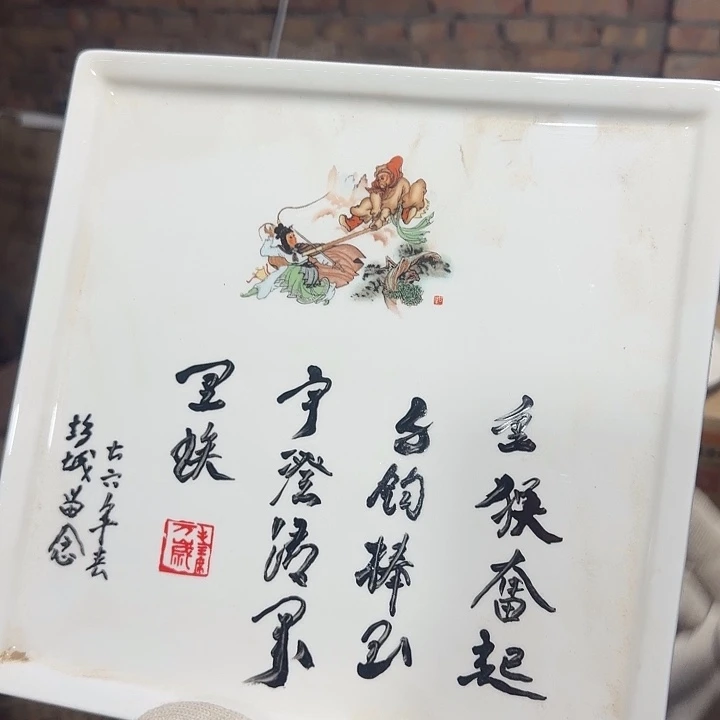 金猴奮起
千钧棒玉
宇澄清萬
里埃
毛主席
万歲
七六年春
彭城留念